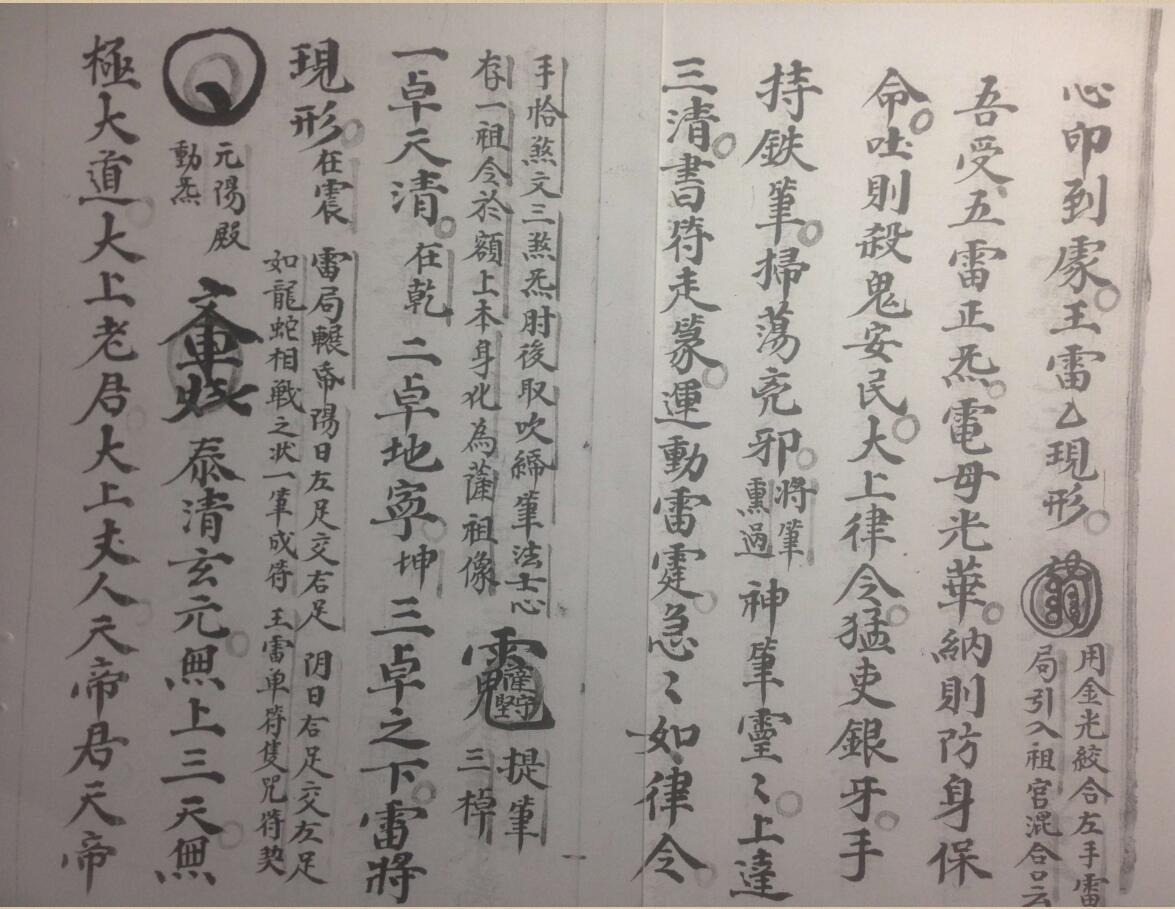 心印到處王雷乙現形
用金光絞合左手雷
局引入祖宮混合口云
吾受五雷正炁電母光華納則防身保
命吐則殺鬼安民大上律令猛吏銀牙手
持鉄筆掃蕩党邪
將筆
熏過
神筆靈〻上達
三清書符走篆運動雷霆急〻如律令
手恰煞文三煞炁肘後取吹締筆法士心
存一祖令於額上本身化為薩祖像
提筆
三棹
一卓天清在乾二卓地寧坤三卓之下雷將
現形在震
雷局輾帋陽日左足交右足 阴日右足交左足
如龍蛇相戰之状一筆成符 王雷单符隻咒符契
元陽殿
動炁
泰清玄元無上三天無
極大道大上老君大上丈人天帝君天帝